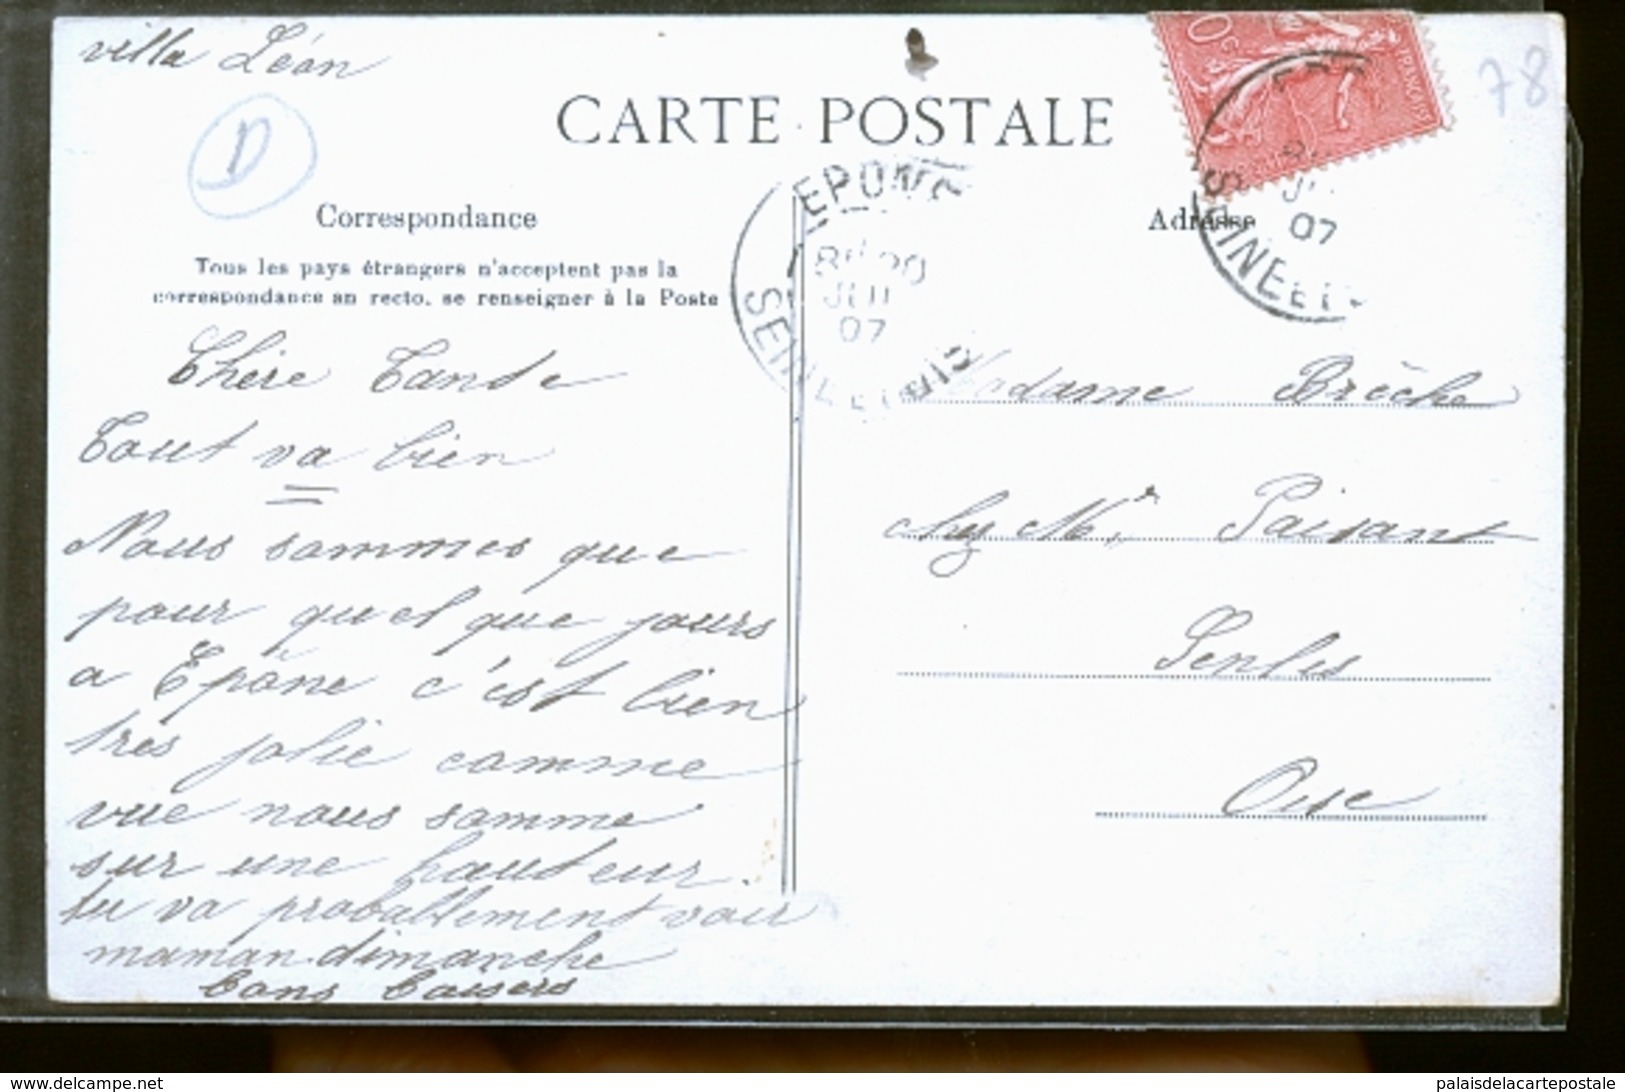 villa Léon
D
78
CARTE POSTALE
Correspondance
Adresse
Tous les pays étrangers n'acceptent pas la
correspondance au recto. se renseigner à la Poste
EPONE
8h 20
JUIL
07
SEINE ET OIS
07
SEINE ET
Chère Tande
Tout va bien
Nous sommes que
pour quel que jours
a Epône c'est bien
très jolie comme
vue nous somme
sur une hauteur.
tu va proballement voir
maman dimanche
bons baisers
Madame Brèche
chez Mr Paisant
Senlis
Oise
www.delcampe.net
palaisdelacartepostale